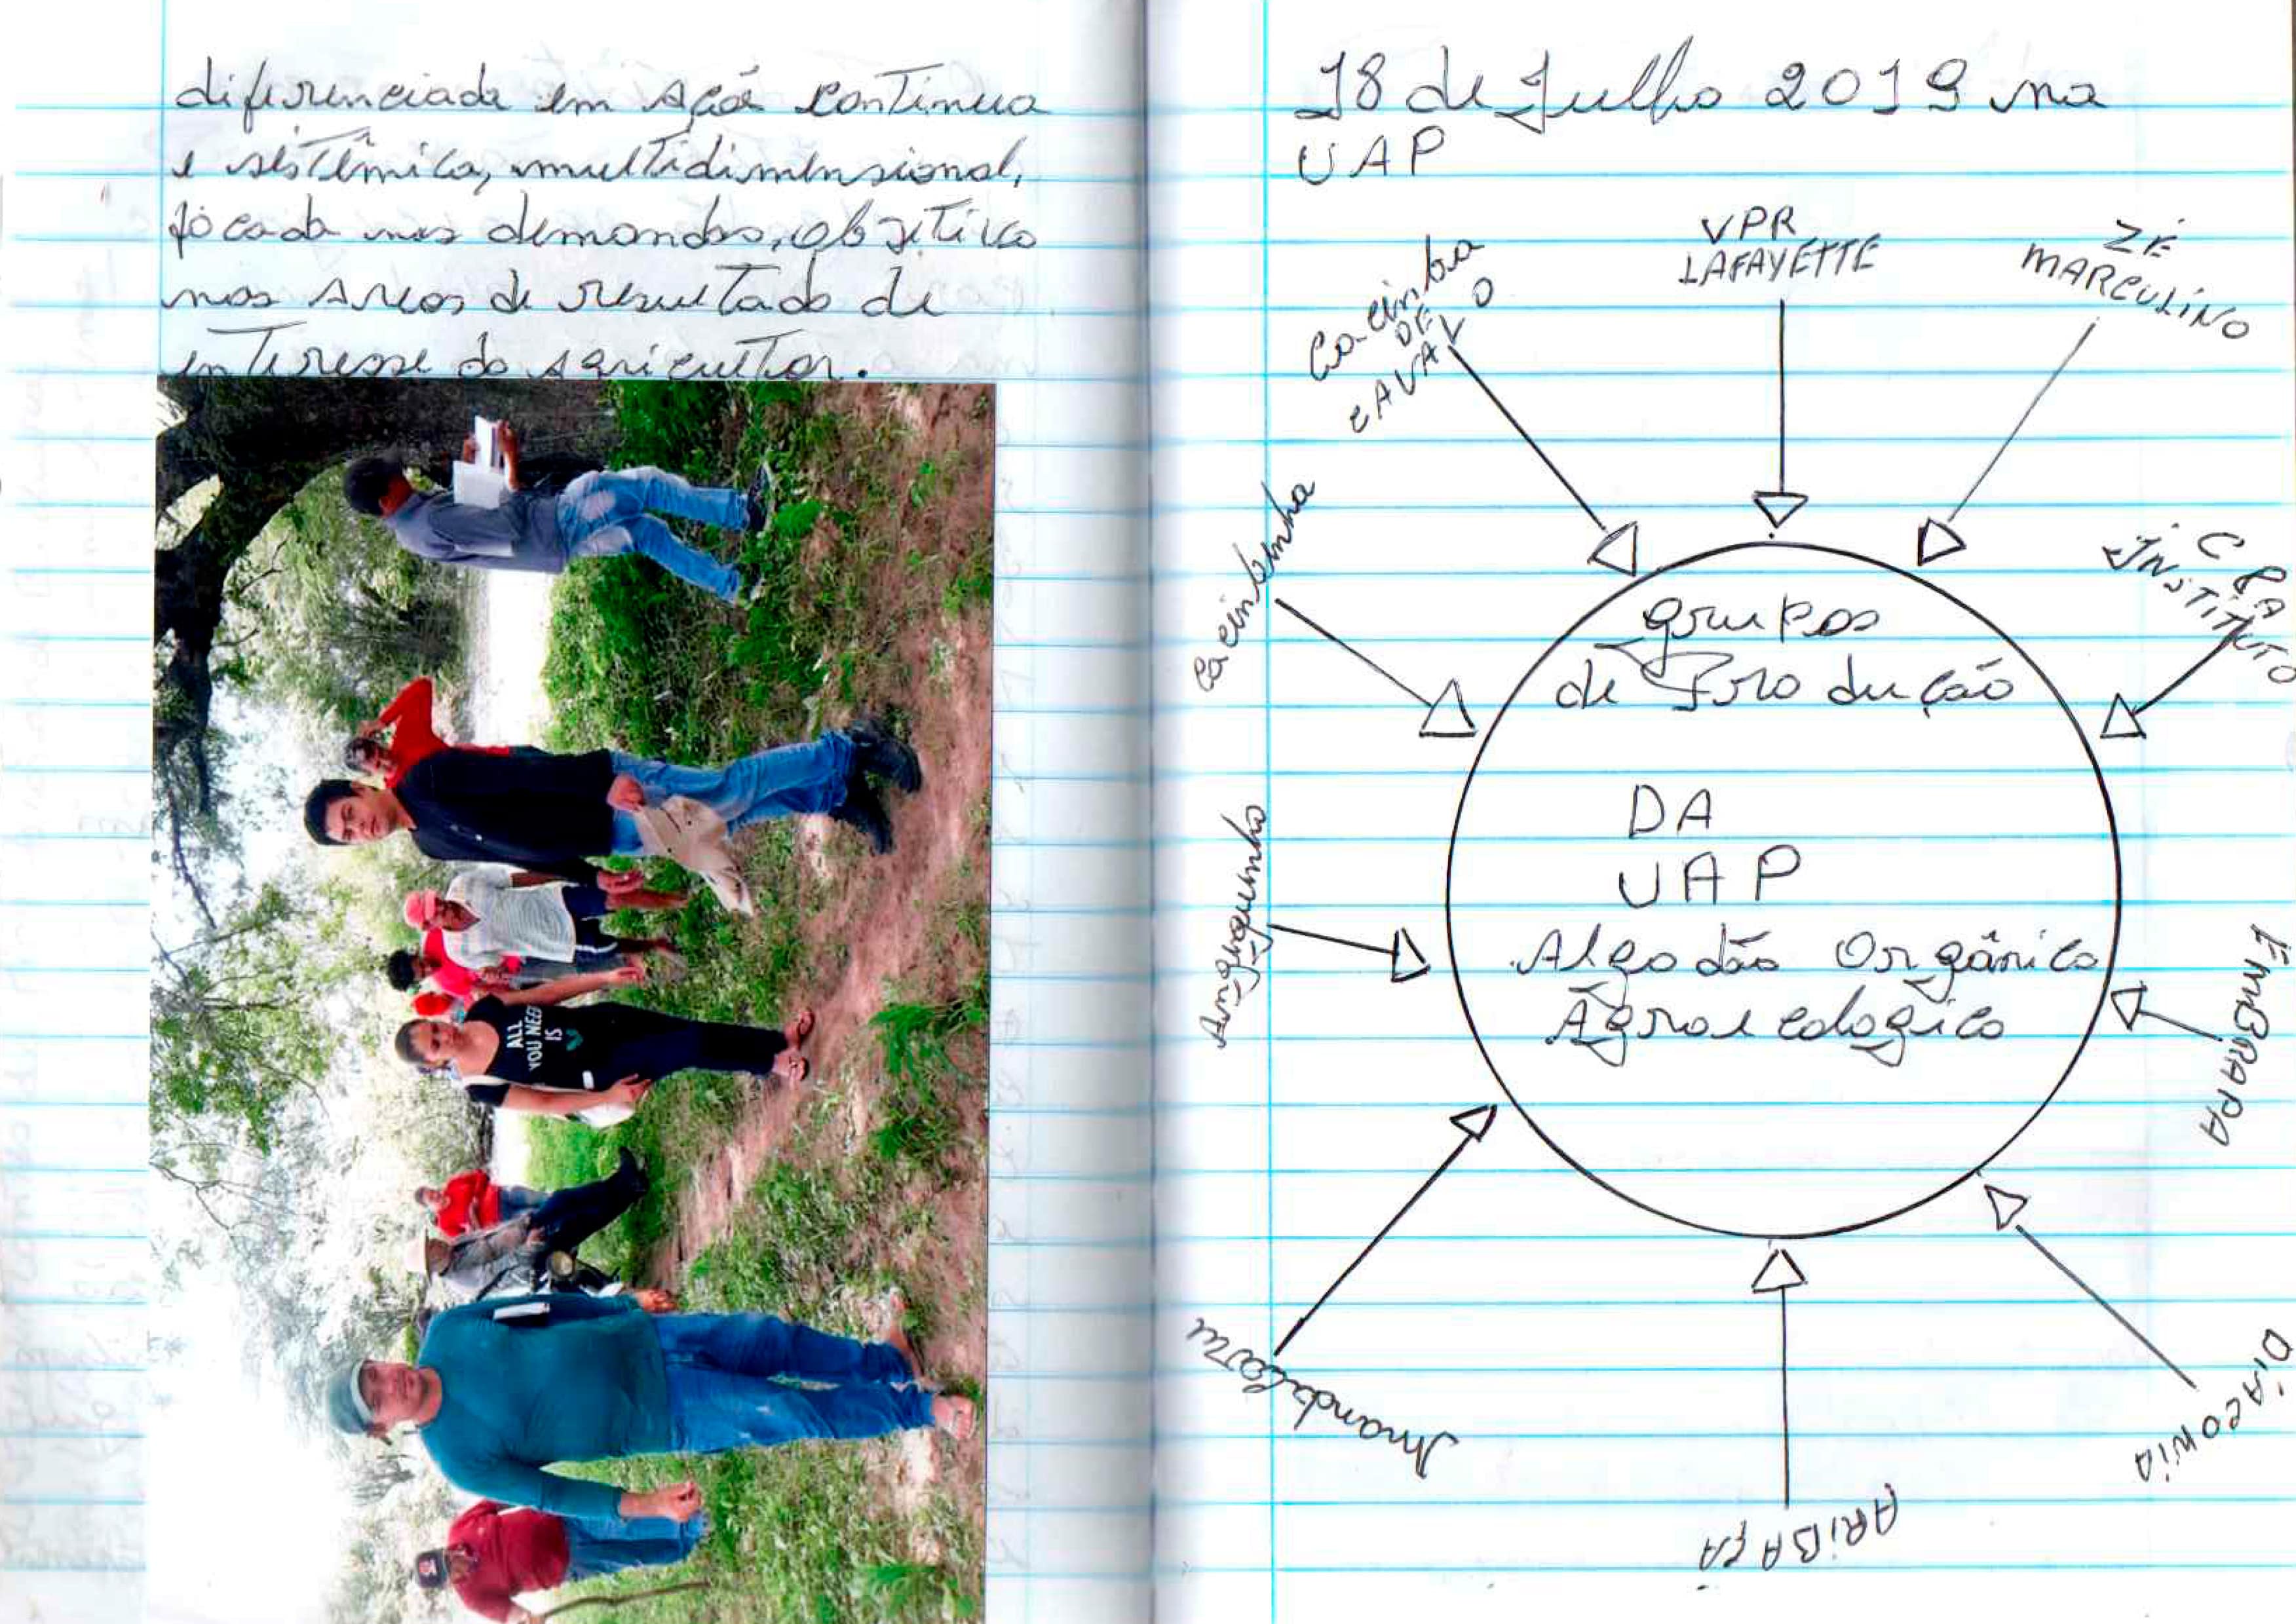 diferenciada em Ação continua
e sistêmica, multidimensional,
focada nas demandas, objetivo
nas Areas de resultado de
interesse do agricultor.
ALL
YOU NEE
IS
18 de Julho 2019 na
UAP
Cacimba
DE
CAVALO
VPR
LAFAYETTE
ZÉ
MARCULINO
Cacimbinha
C P A
INSTITUTO
grupos
de Produção
DA
UAP
Algodão Orgânico
Agroecologico
Angiquinho
EMBRAPA
Mandacaru
ARIBAÇA
DIACONIA